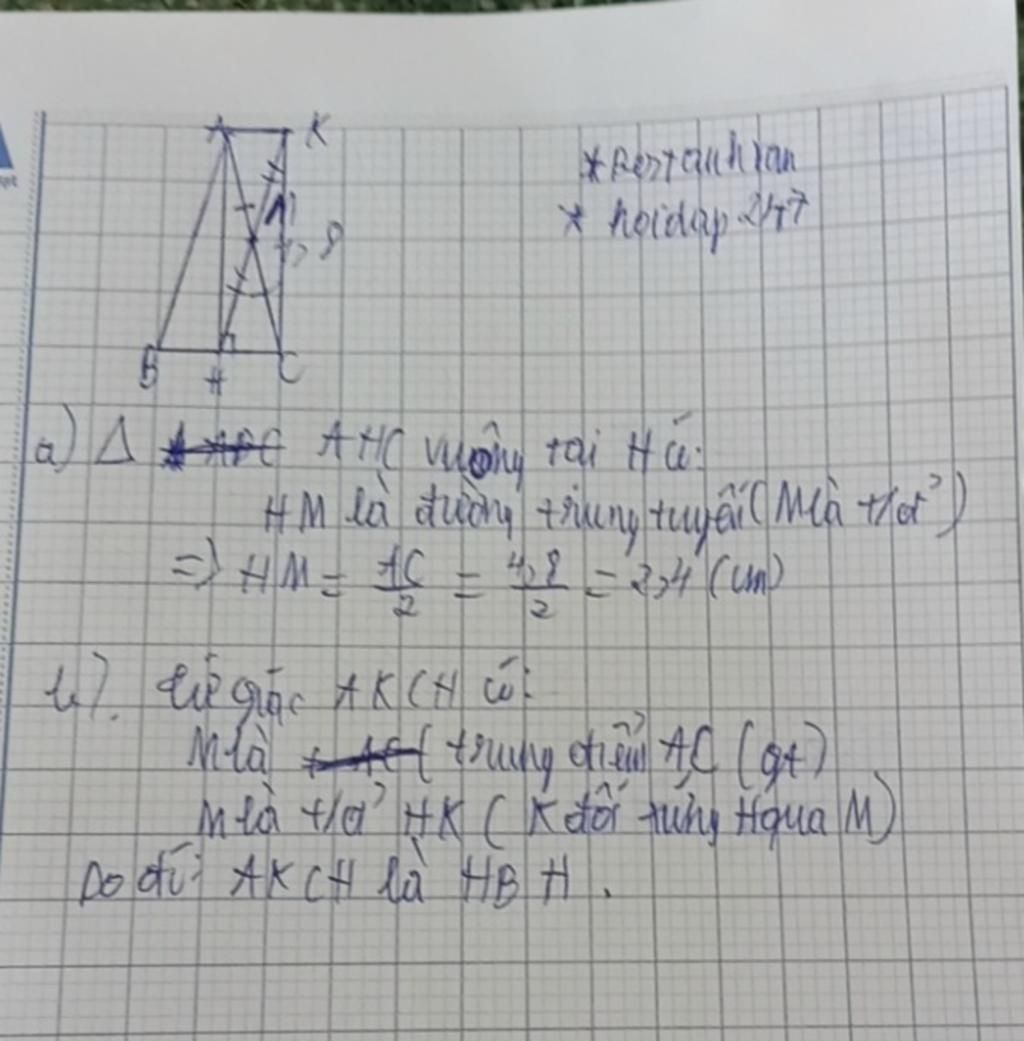 A K
M
4,8
B H C
* hoidap 247
a) Δ AHC vuông tại H có:
HM là đường trung tuyến (M là t/đ²)
=> HM = AC/2 = 4,8/2 = 2,4 (cm)
b). tứ giác AKCH có:
M là trung điểm AC (gt)
M là t/đ² HK (K đối xứng H qua M)
Do đó: AKCH là HBH.